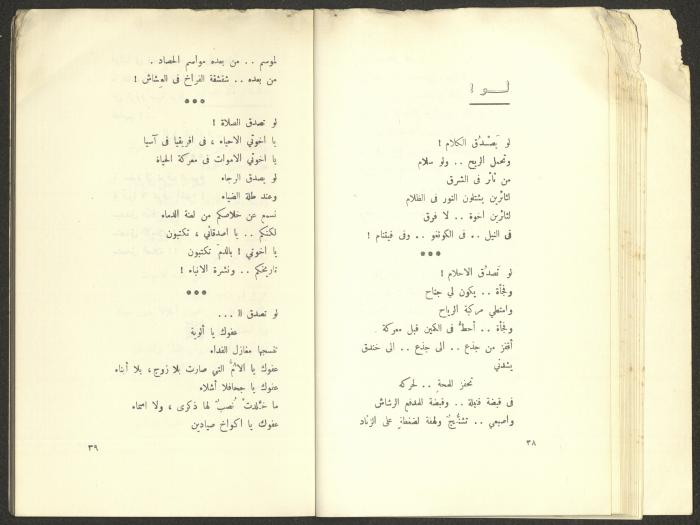 لو !
لو يَصْدُق الكلام !
وتحمل الريح .. ولو سلام
من ثائر فى الشرق
لثائرين يشتلون النور فى الظلام
لثائرين اخوة .. لا فرق
فى النيل .. فى الكونغو .. وفى فيتنام !
•••
لو تَصدُق الاحلام !
وفجأة .. يكون لي جناح
وامتطي مركبة الرياح
وفجأة .. أحطُّ فى الكمين قبل معركة
أقفز من جذع .. الى جذع .. الى خندق
يشدني
تحفز للمحةٍ .. لحركه
فى قبضة قنبلة .. وقبضة للمدفع الرشاش
واصبعي .. تشنُّجٌ ولهفة لضغطةٍ على الزناد
٣٨
لموسم .. من بعده مواسم الحصاد .
من بعده .. شقشقة الفراخ فى العِشاش !
•••
لو تصدق الصلاة !
يا اخوتي الاحياء ، فى افريقيا فى آسيا
يا اخوتي الاموات فى معركة الحياة
لو يصدق الرجاء
وعند طلة الضياء
نسمع عن خلاصكم من لعنة الدماء
لكنّكم .. يا اصدقائي ، تكتبون
يا اخوتي ! بالدمّ تكتبون
تاريخكم .. ونشرة الانباء !
•••
لو تصدق الـ ...
عفوك يا ألوية
تنسجها مغازل الفداء
عفوك يا الامُّ التي صارت بلا زوج ، بلا أبناء
عفوك يا جحافلا أشلاء
ما خلّدتْ نُصبٌ لها ذكرى ، ولا اسماء
عفوك يا اكواخ صيادين
٣٩